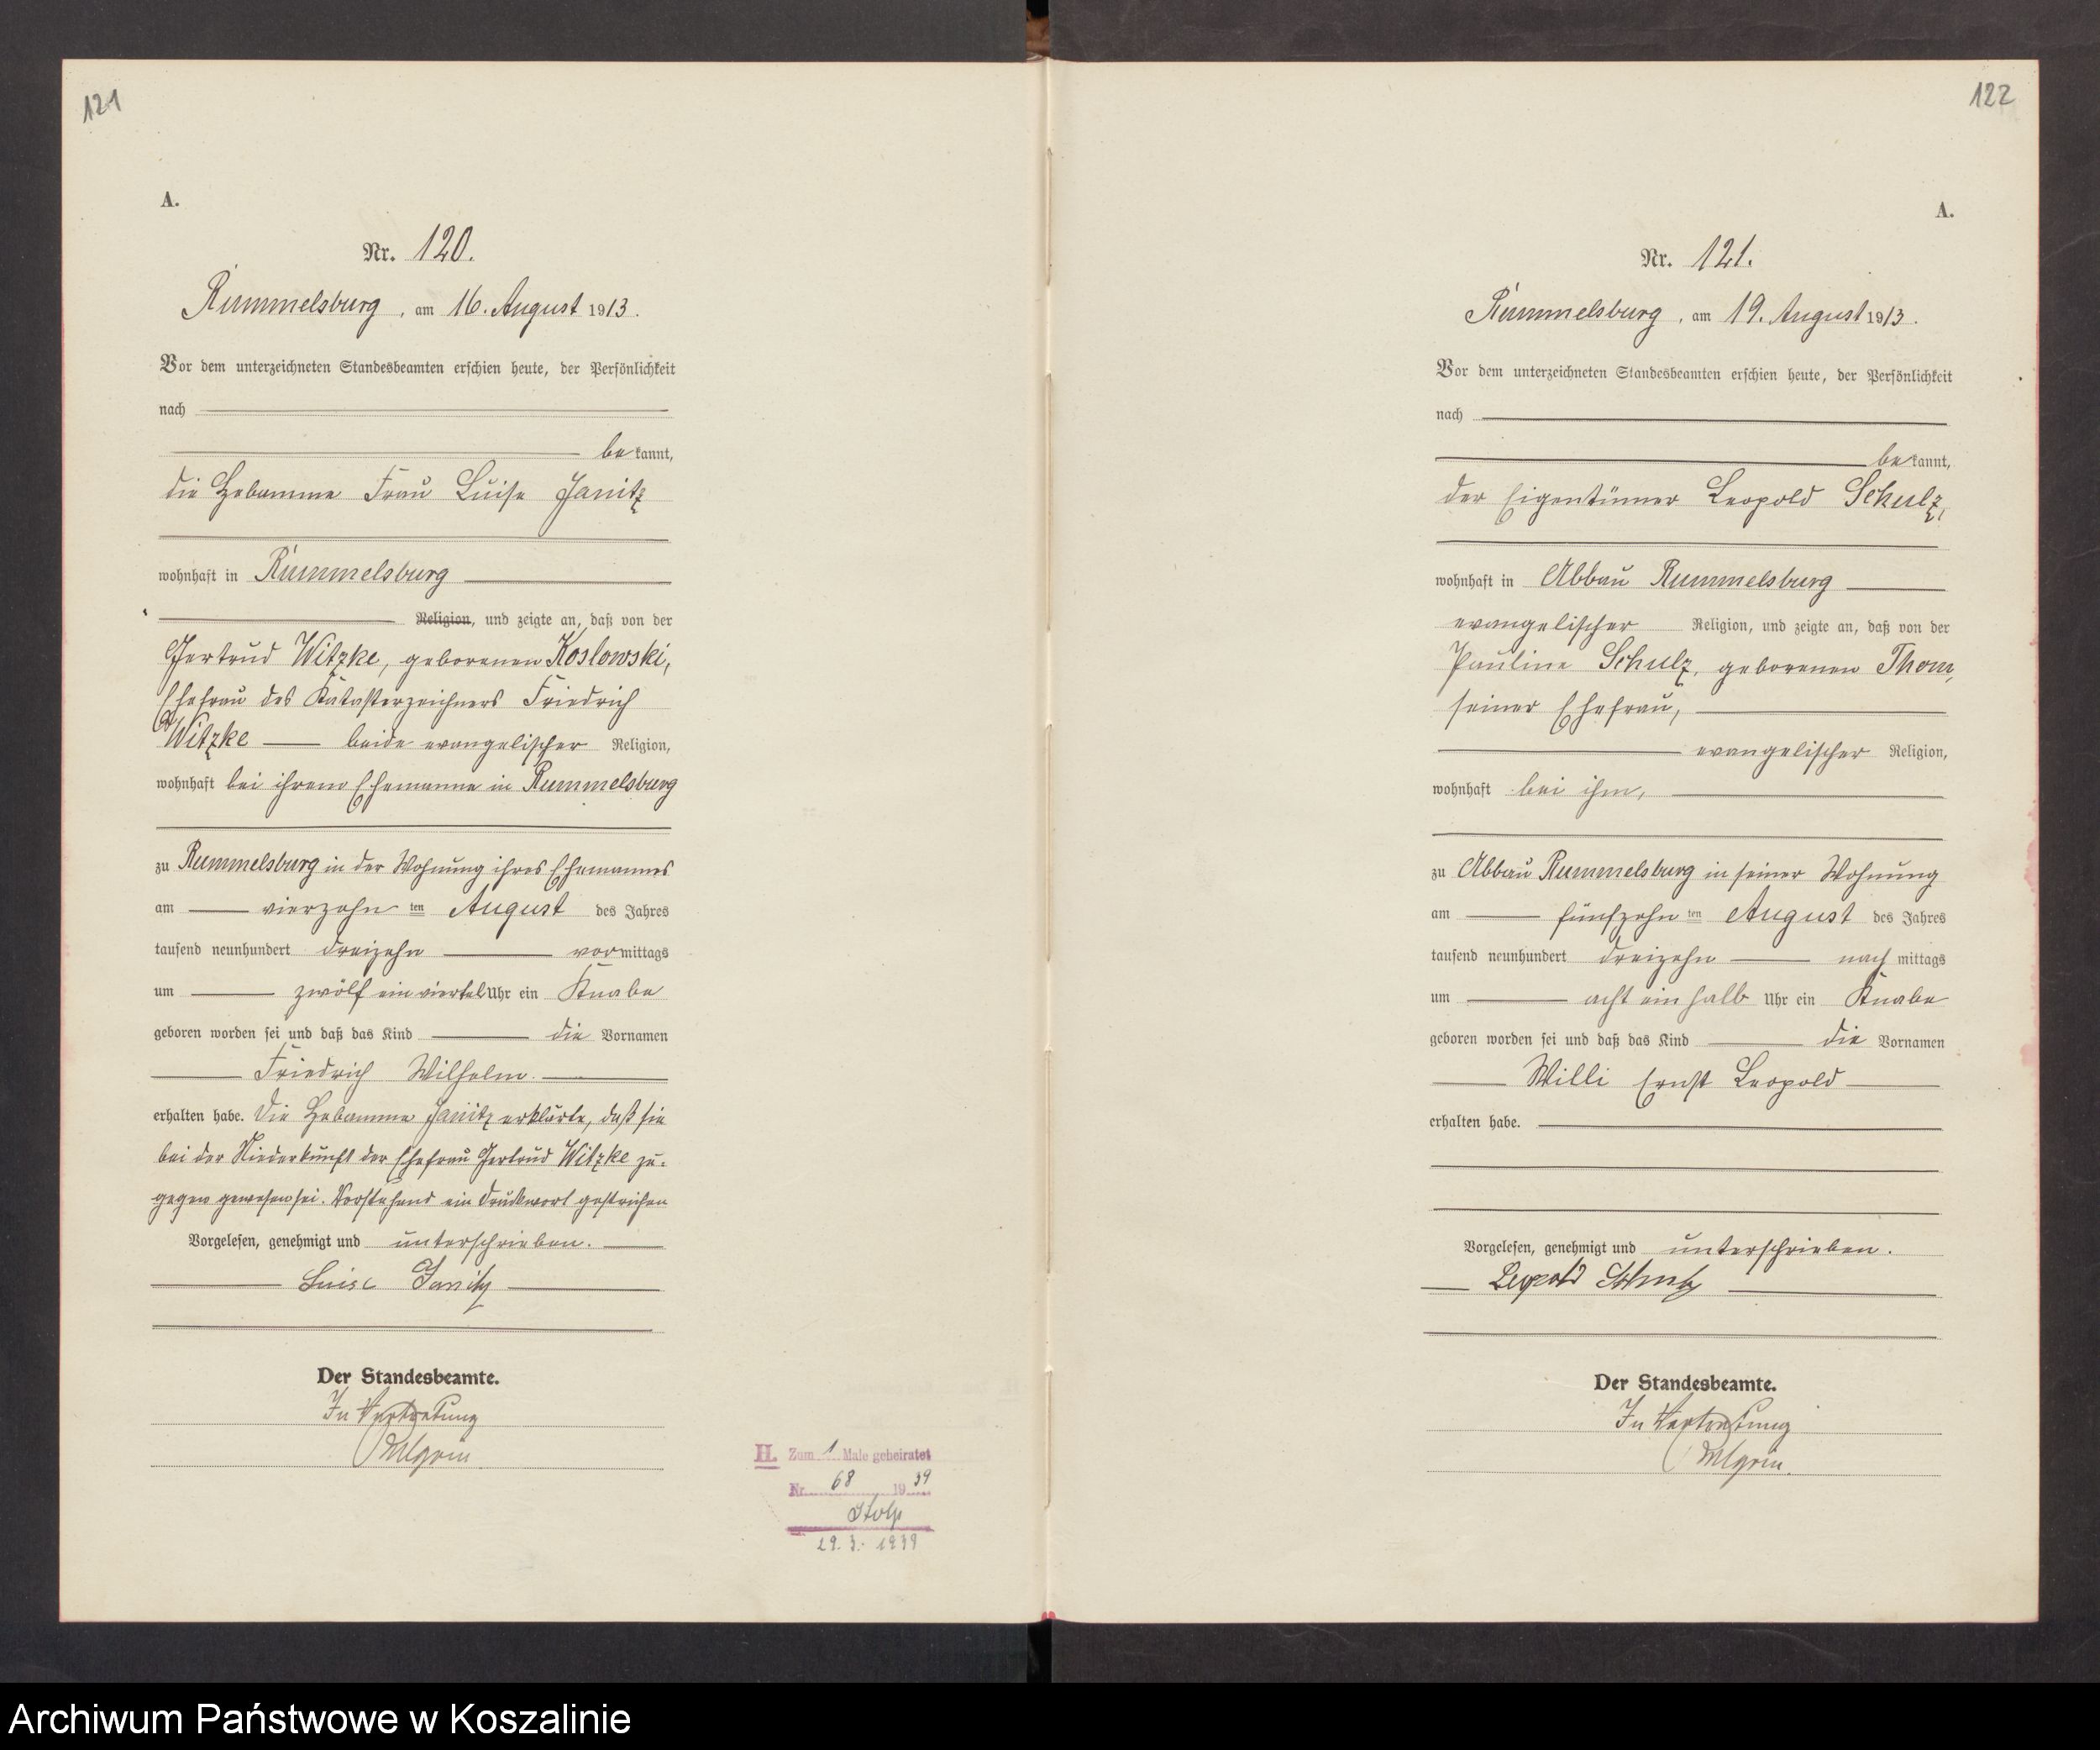 121
A.
Nr. 120.
Rummelsburg, am 16. August 1913.
Vor dem unterzeichneten Standesbeamten erschien heute, der Persönlichkeit
nach
bekannt,
die Hebamme Frau Luise Janitz
wohnhaft in Rummelsburg
Religion, und zeigte an, daß von der
Gertrud Witzke, geborenen Koslowski,
Ehefrau des Katasterzeichners Friedrich
Witzke beide evangelischer Religion,
wohnhaft bei ihrem Ehemanne in Rummelsburg
zu Rummelsburg in der Wohnung ihres Ehemannes
am vierzehnten August des Jahres
tausend neunhundert dreizehn vormittags
um zwölf ein viertel Uhr ein Knabe
geboren worden sei und daß das Kind die Vornamen
Friedrich Wilhelm.
erhalten habe. Die Hebamme Janitz erklärte, daß sie
bei der Niederkunft der Ehefrau Gertrud Witzke zu-
gegen gewesen sei. Vorstehend ein Druckwort gestrichen
Vorgelesen, genehmigt und unterschrieben.
Luise Janitz
Der Standesbeamte.
In Vertretung
H. Zum 1 Male geheiratet
Nr. 68 1939
Stolp
29. 3. 1939
122
A.
Nr. 121.
Rummelsburg, am 19. August 1913.
Vor dem unterzeichneten Standesbeamten erschien heute, der Persönlichkeit
nach
bekannt,
der Eigentümer Leopold Schulz,
wohnhaft in Abbau Rummelsburg
evangelischer Religion, und zeigte an, daß von der
Pauline Schulz, geborenen Thom,
seiner Ehefrau,
evangelischer Religion,
wohnhaft bei ihm,
zu Abbau Rummelsburg in seiner Wohnung
am fünfzehnten August des Jahres
tausend neunhundert dreizehn nachmittags
um acht ein halb Uhr ein Knabe
geboren worden sei und daß das Kind die Vornamen
Willi Ernst Leopold
erhalten habe.
Vorgelesen, genehmigt und unterschrieben.
Leopold Schulz
Der Standesbeamte.
In Vertretung
Archiwum Państwowe w Koszalinie